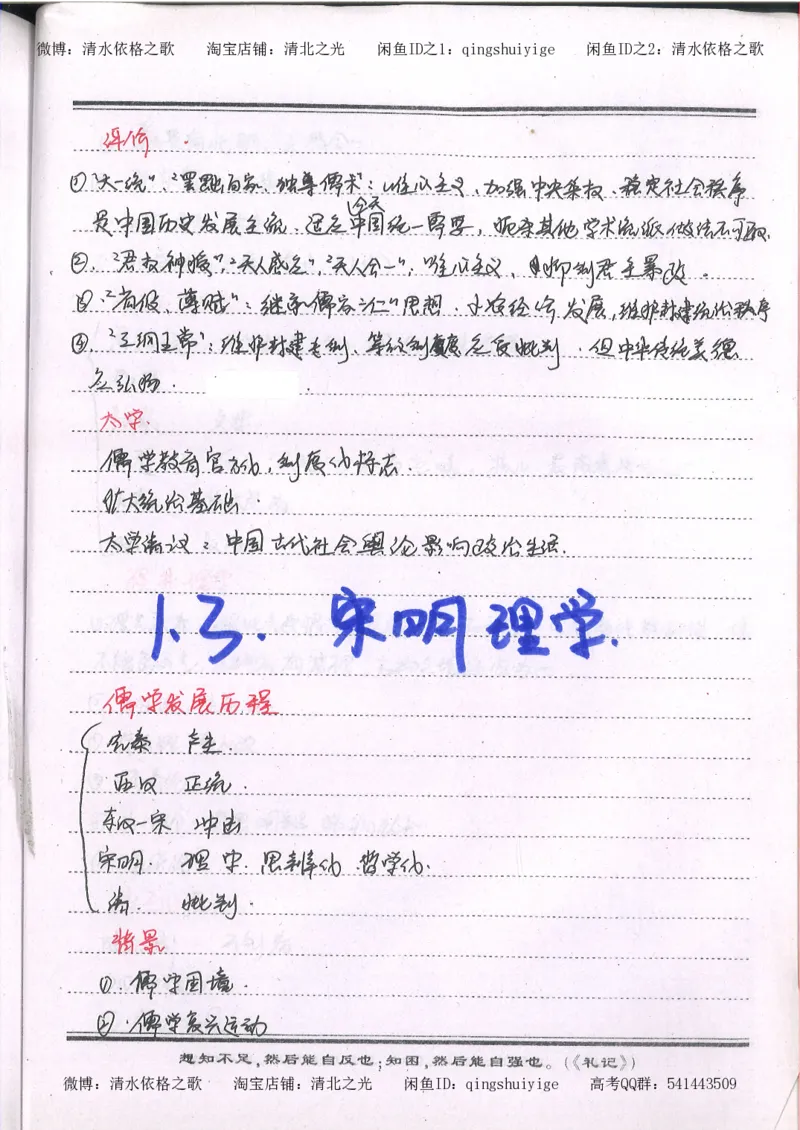 微博：清水依格之歌 淘宝店铺：清北之光 闲鱼ID之1：qingshuiyige 闲鱼ID之2：清水依格之歌
评价
①"大一统"、"罢黜百家、独尊儒术"：唯心主义、加强中央集权、稳定社会秩序
是中国历史发展主流、适应今天中国统一需要，扼杀其他学术流派做法不可取.
②."君权神授"、"天人感应"、"天人合一"：唯心主义、抑制君主暴政.
③."省役、薄赋"：继承儒家"仁"思想.小农经济发展，维护封建统治秩序
④."三纲五常"：维护封建专制、等级制度应反批判.但中华传统美德
应弘扬.
太学.
儒学教育官方化，制度化标志.
扩大统治基础.
太学清议：中国古代社会舆论影响政治生活.
1.3. 宋明理学.
儒学发展历程
先秦 产生.
西汉 正统.
东汉—宋 冲击
宋明. 理学.思辨化 哲学化.
清 批判.
背景
①.儒学困境.
②.儒学复兴运动
想知不足，然后能自反也；知困，然后能自强也。（《礼记》）
微博：清水依格之歌 淘宝店铺：清北之光 闲鱼ID：qingshuiyige 高考QQ群：541443509